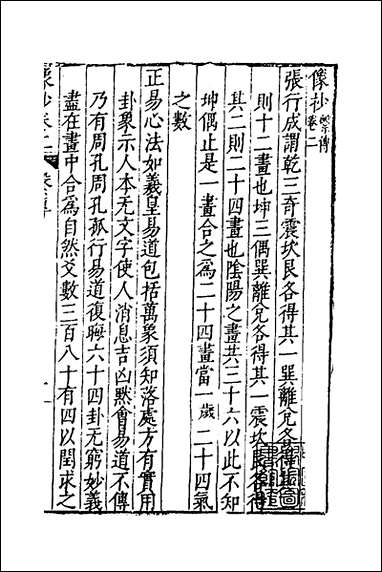 像抄卷二 繫傳
張行成謂乾三奇震坎艮各得其一巽離兌各得其二
則十二畫也坤三偶巽離兌各得其一震坎艮各得
其二則二十四畫也陰陽之畫共三十六以此不知
坤偶止是一畫合之為二十四畫當一歲二十四氣
之數
正易心法如羲皇易道包括萬象須知落處方有實用
卦象示人本无文字使人消息吉凶默會易道不傳
乃有周孔周孔孤行易道復晦六十四卦无窮妙義
盡在畫中合為自然爻數三百八十有四以閏求之
像抄卷二